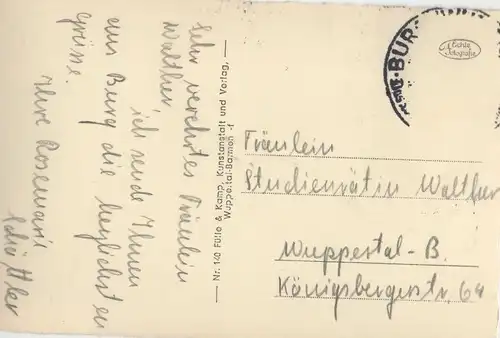 Sehr verehrtes Fräulein
Walther
ich sende Ihnen
aus Burg die herzlichsten
Grüsse.
Ihre Rosemarie
Nr. 140 Fülle & Kamp, Kunstanstalt und Verlag,
Wuppertal-Barmen -f
BUR
Echte
Fotografie
Fräulein
Studienrätin Walther
Wuppertal-B.
Königsbergerstr. 64